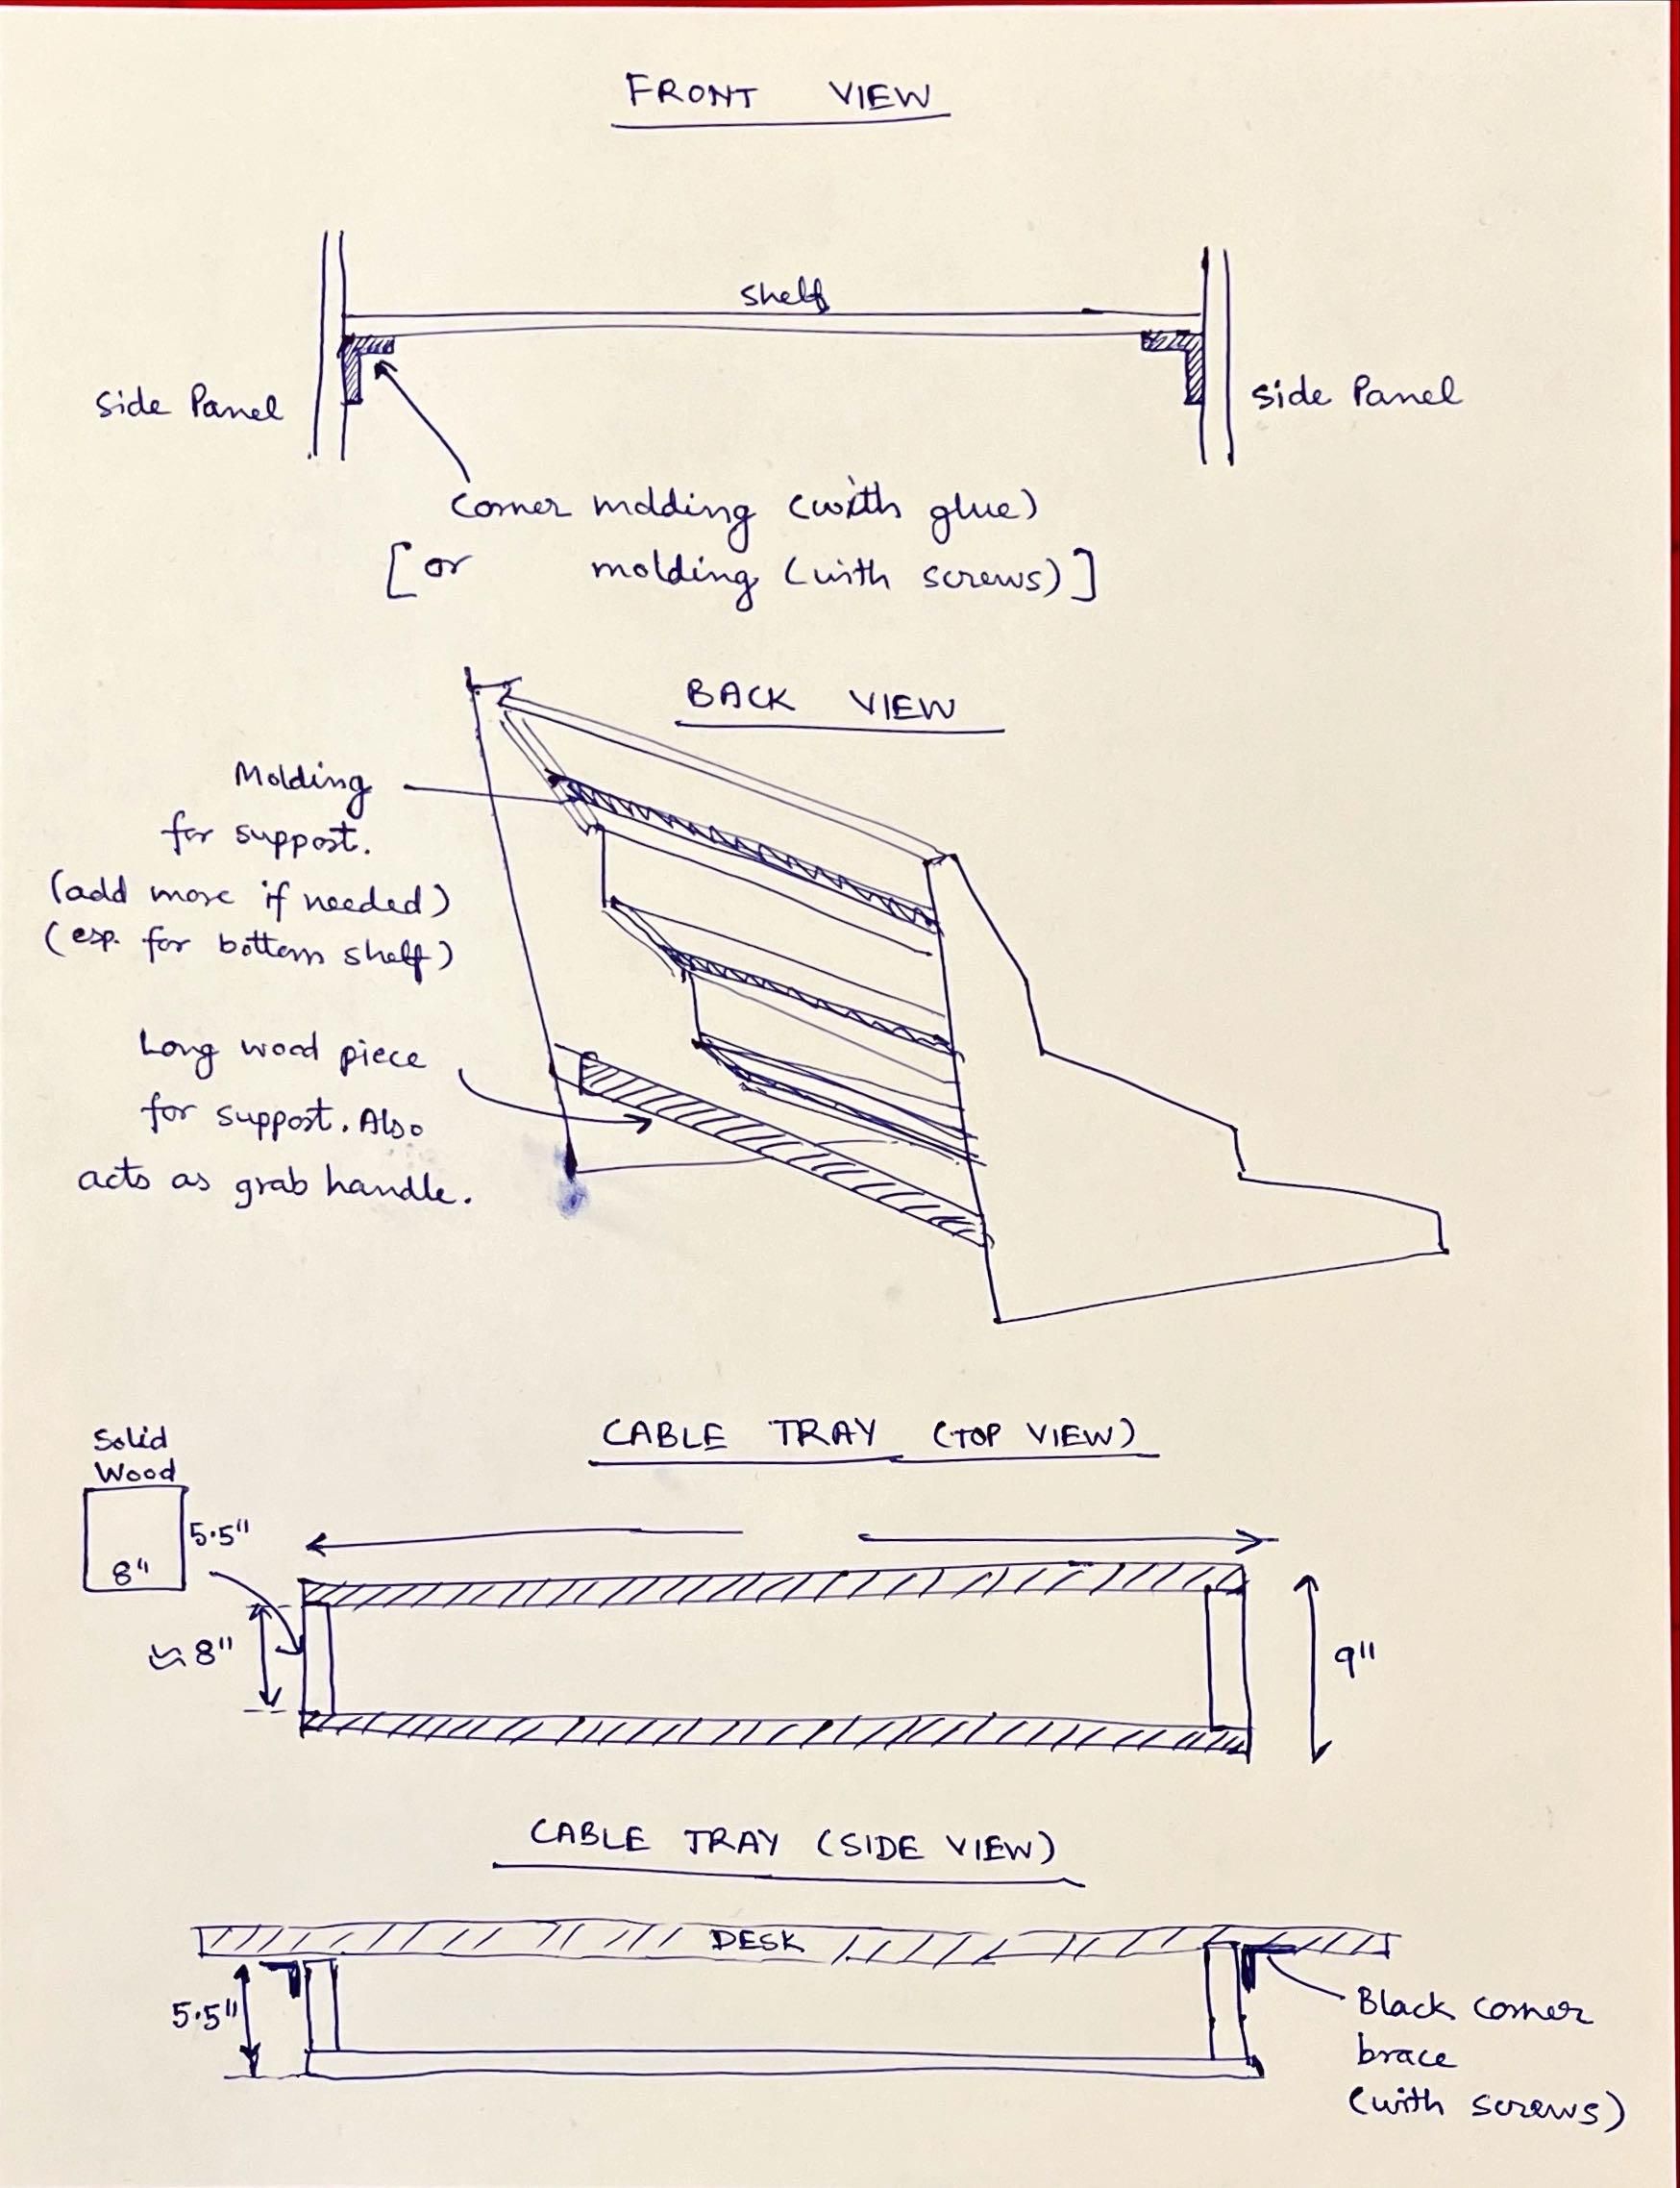 FRONT VIEW
Shelf
Side Panel
Side Panel
Corner molding (with glue)
[or molding (with screws)]
BACK VIEW
Molding
for support.
(add more if needed)
(esp. for bottom shelf)
Long wood piece
for support. Also
acts as grab handle.
CABLE TRAY (TOP VIEW)
Solid
Wood
5.5"
8"
≈ 8"
9"
CABLE TRAY (SIDE VIEW)
DESK
5.5"
Black corner
brace
(with screws)